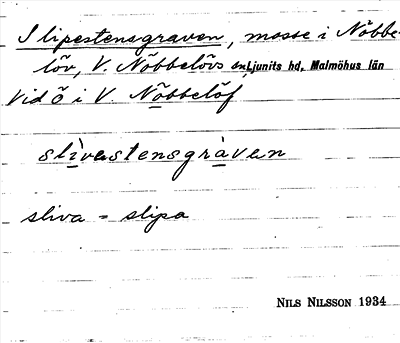 Slipestensgraven, mosse i Nöbbe-
löv, V. Nöbbelövs sn, Ljunits hd, Malmöhus län
Vid ö i V. Nöbbelöf
slivastensgràvan
sliva = slipa
NILS NILSSON 1934